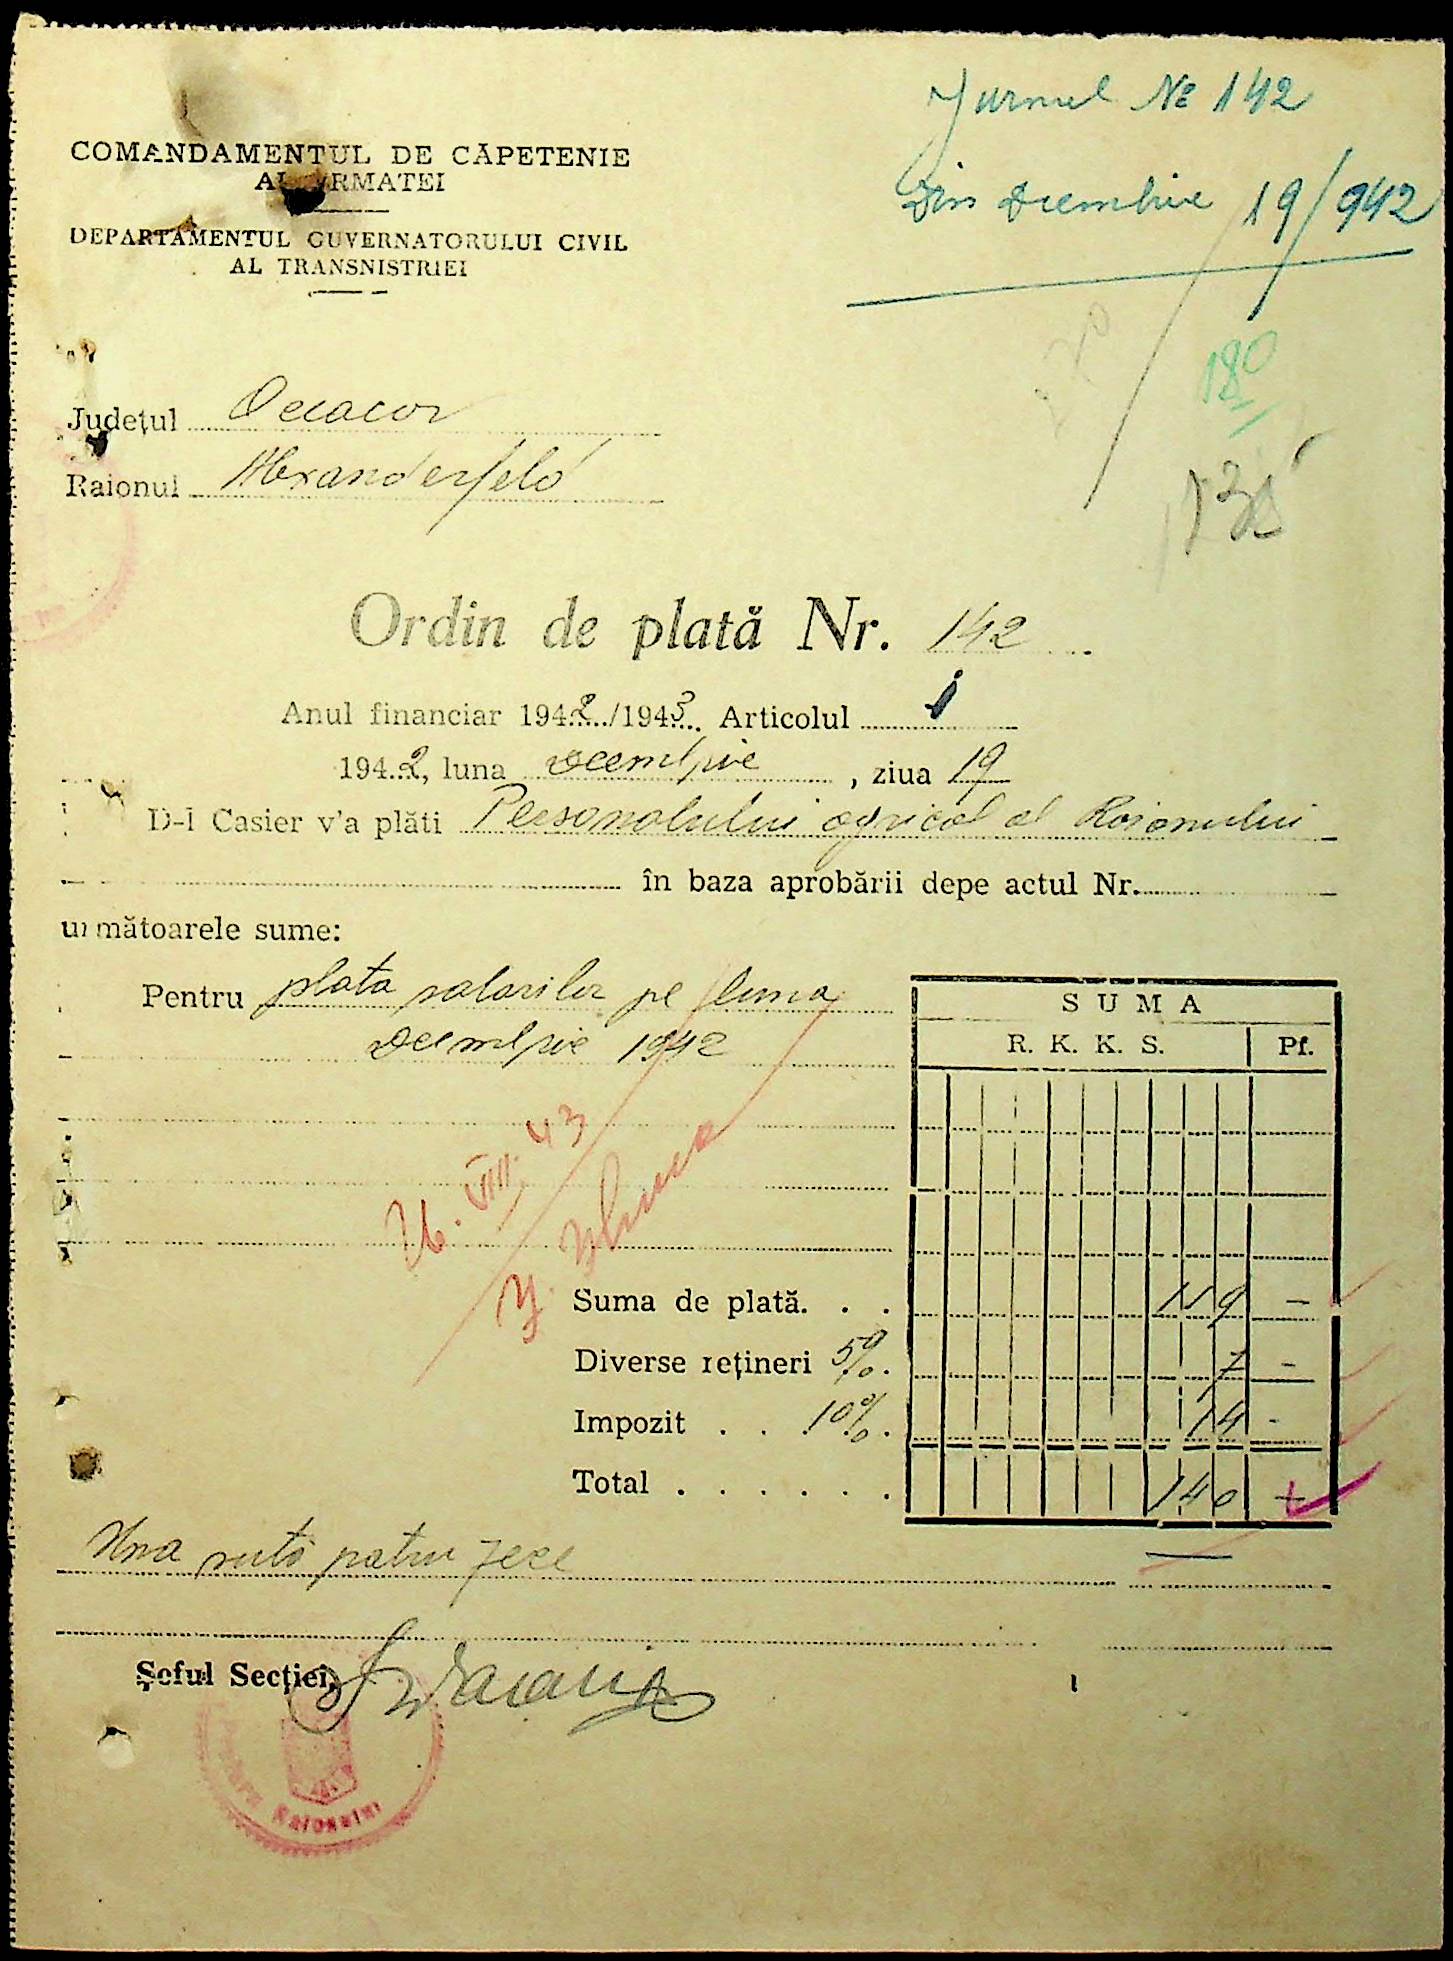 Jurnal № 142
Din Decembrie 19/942
COMANDAMENTUL DE CĂPETENIE
AL ARMATEI
DEPARTAMENTUL GUVERNATORULUI CIVIL
AL TRANSNISTRIEI
180
Județul Oceacov
Raionul Alexanderfeld
Ordin de plată Nr. 142
Anul financiar 1942/1943 Articolul 1
1942, luna Decembrie, ziua 19
D-l Casier v'a plăti Personalului agricol al Raionului
în baza aprobării depe actul Nr.
următoarele sume:
Pentru plata salariilor pe luna
Decembrie 1942
SUMA
R. K. K. S. Pf.
VIII. 43
Suma de plată. . . 119 –
Diverse rețineri 5%. 7 –
Impozit . . 10%. 14 -
Total . . . . . . 140 –
Una sută patru zece
Șeful Secției,
Raionului